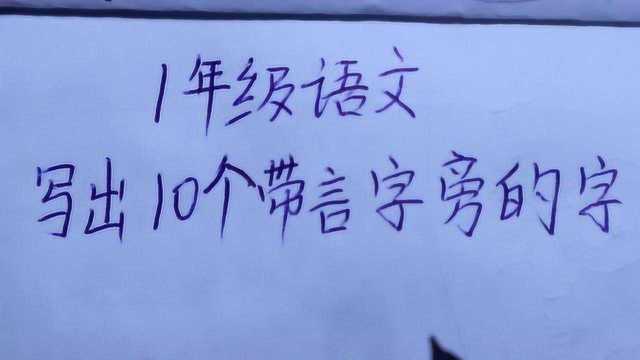 1年级语文
写出10个带言字旁的字